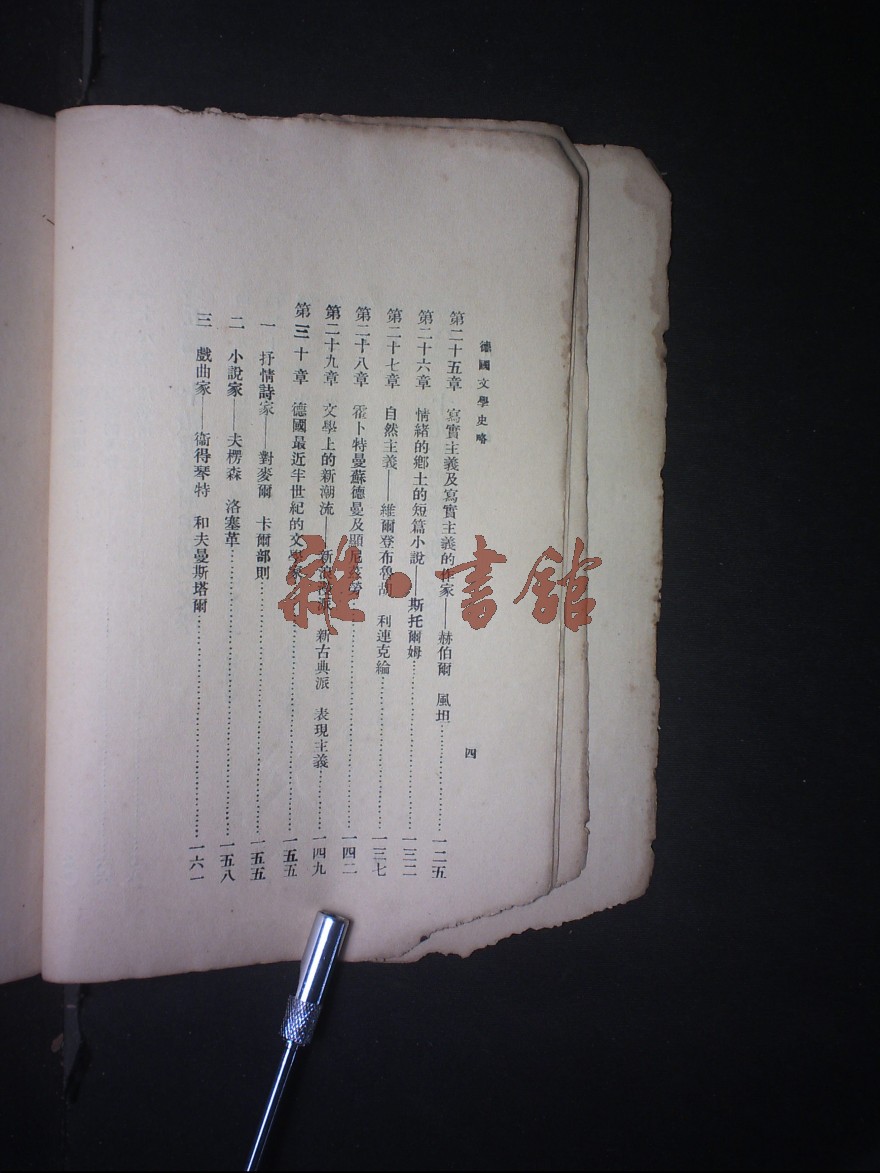 德國文學史略
四
第二十五章 寫實主義及寫實主義的作家——赫伯爾 風坦…………一二五
第二十六章 情緒的鄉土的短篇小說——斯托爾姆…………一三二
第二十七章 自然主義——維爾登布魯胡 利連克綸…………一三七
第二十八章 霍卜特曼蘇德曼及顯尼茲勞…………一四二
第二十九章 文學上的新潮流——新浪漫派 新古典派 表現主義…………一四九
第三十章 德國最近半世紀的文學家…………一五五
一 抒情詩家——對麥爾 卡爾部則…………一五五
二 小說家——夫楞森 洛塞革…………一五八
三 戲曲家——衞得琴特 和夫曼斯塔爾…………一六一
雜·書館